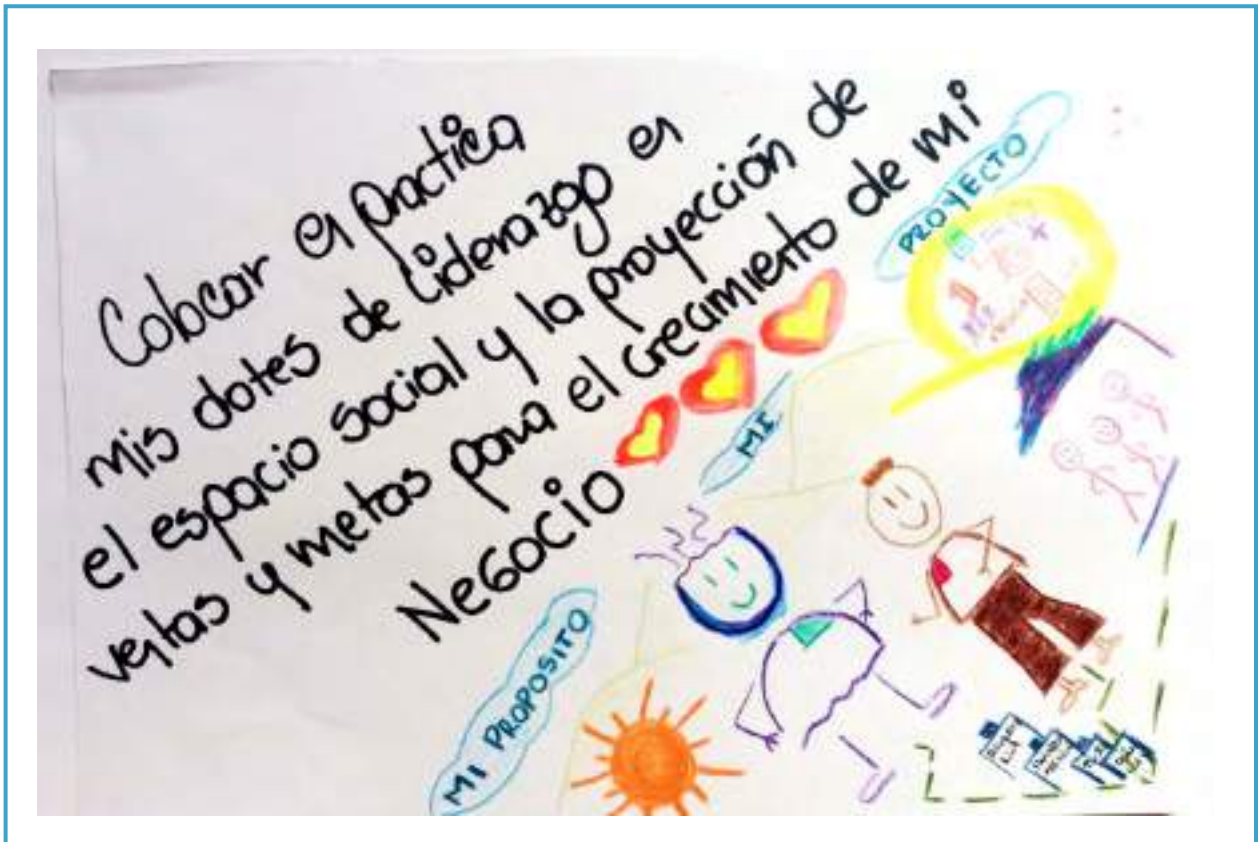 Colocar en practica
mis dotes de Liderazgo en
el espacio social y la proyección de
ventas y metas para el crecimiento de mi
Negocio
MI PROPOSITO
MI
PROYECTO